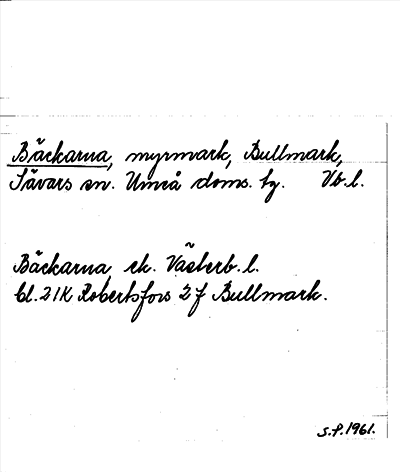 Bäckarna, myrmark, Bullmark,
Sävars sn. Umeå doms. tg. Vb. l.
Bäckarna, ek. Västerb. l.
bl. 21K Robertsfors 2 f Bullmark.
S.P. 1961.